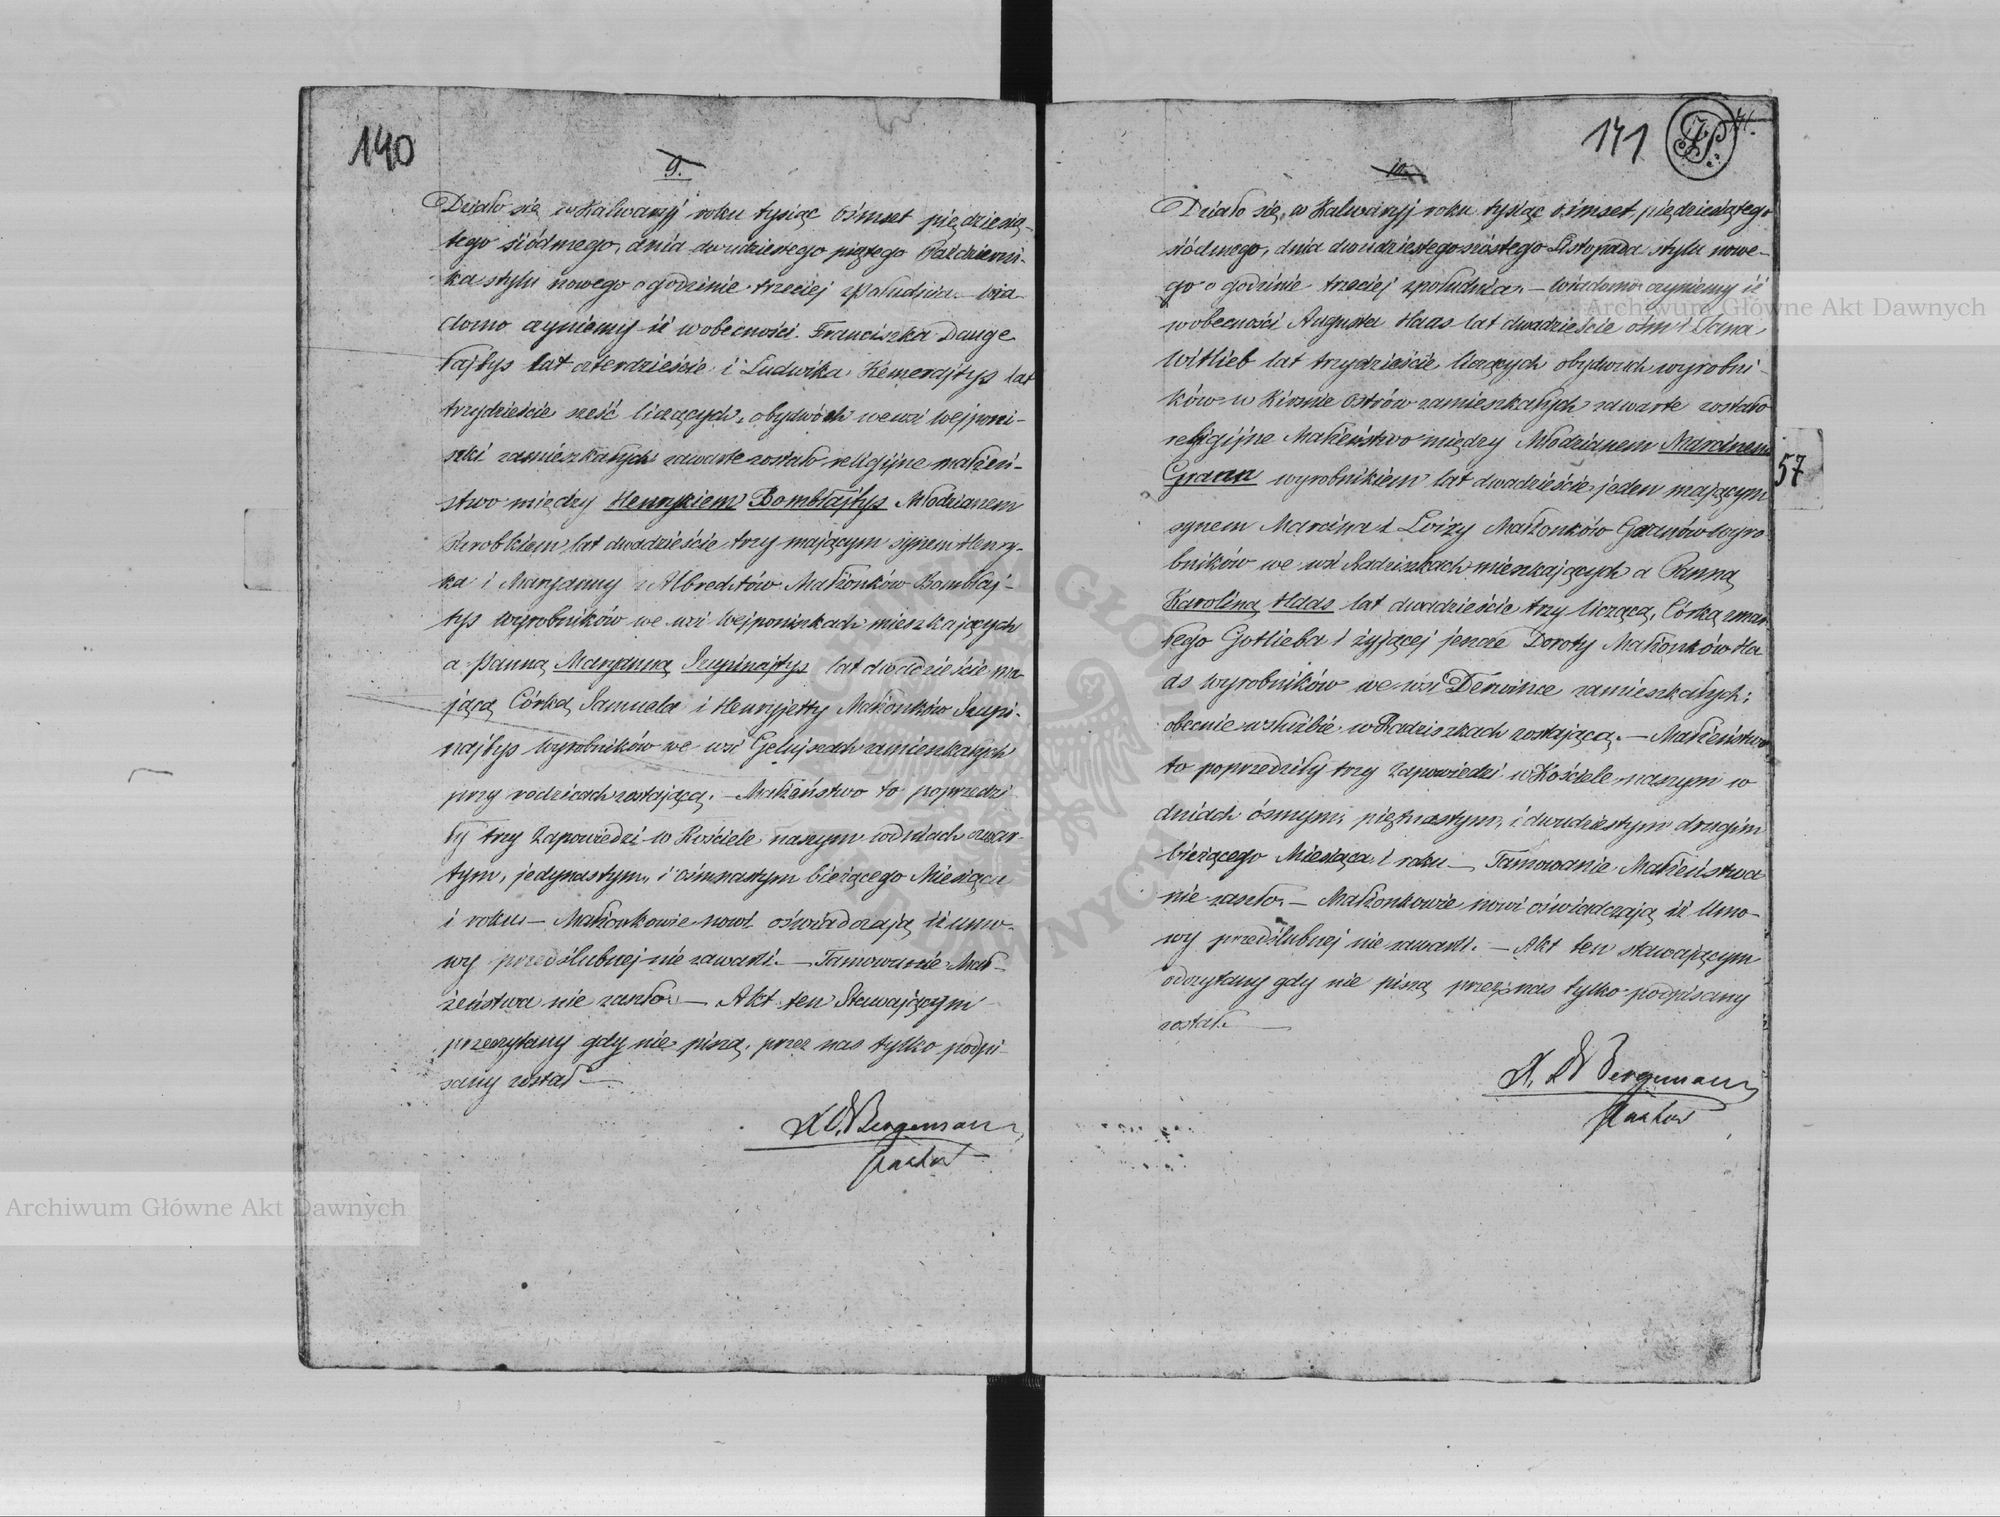 140
9.
Działo się w Kalwaryj roku tysiąc ośmset pięćdziesią-
tego siódmego, dnia dwudziestego piątego Październi-
ka stylu nowego o godzinie trzeciej z południa – wia-
domo czyniemy iż w obecności Franciszka Dauge
łajtys lat czterdzieście i Ludwika Kemerajtys lat
trzydzieście sześć liczących, obydwóch we wsi Wejponi-
szki zamieszkałych zawarte zostało religijne małżeń-
stwo między Henrykiem Bombłajtys Młodzianem
Parobkiem lat dwadzieście trzy mającym synem Henry-
ka i Maryanny z Albredtów Małżonków Bombłaj-
tys wyrobników we wsi Wejponiszkach mieszkających
a Panną Maryanną Szupinajtys lat dwadzieście ma-
jącą Córką Samuela i Henryjetty Małżonków Szupi-
najtys wyrobników we wsi zamieszkałych
przy rodzicach zostającą. – Małżeństwo to poprzedzi
ły trzy Zapowiedzi w Kościele naszym w dniach czwar-
tym, jedynastym, i ośmnastym bieżącego Miesiąca
i roku – Małżonkowie nowi oświadczają iż umo-
wy przedślubnej nie zawarli. – Tamowanie Mał-
żeństwa nie zaszło – Akt ten Stawającym
przeczytany gdy nie piszą, przez nas tylko podpi-
sany został –
Bergemann
Pastor
Archiwum Główne Akt Dawnych
141
10.
Działo się w Kalwaryj roku tysiąc ośmset pięćdziesiątego
siódmego, dnia dwudziestego szóstego Listopada stylu nowe-
go o godzinie trzeciej z południa. – wiadomo czyniemy iż
w obecności Augusta Haas lat dwadzieście ośm i Jana
Witlieb lat trzydzieście liczących obydwuch wyrobni-
ków w Kirsnie Ostrów zamieszkałych zawarte zostało
religijne Małżeństwo między Młodzianem Marcinem
Graun wyrobnikiem lat dwadzieście jeden mającym
synem Marcina i Loizy Małżonków Graunów wyro-
bników we wsi Radziszkach mieszkających a Panną
Karoliną Haas lat dwadzieście trzy liczącą, Córką zmar-
łego Gotlieba i żyjącej jeszcze Doroty Małżonków Ha
as wyrobników we wsi Derwince zamieszkałych;
obecnie w służbie w Radziszkach zostającą. – Małżeństwo
to poprzedziły trzy Zapowiedzi w Kościele naszym w
dniach ósmym, piętnastym, i dwudziestym drugim
bieżącego Miesiąca i roku – Tamowanie Małżeństwa
nie zaszło. – Małżonkowie nowi oświadczają iż Umo-
wy przedślubnej nie zawarli. – Akt ten stawającym
odczytany gdy nie piszą przez nas tylko podpisany
został. –
Bergemann
Pastor
57
Archiwum Główne Akt Dawnych